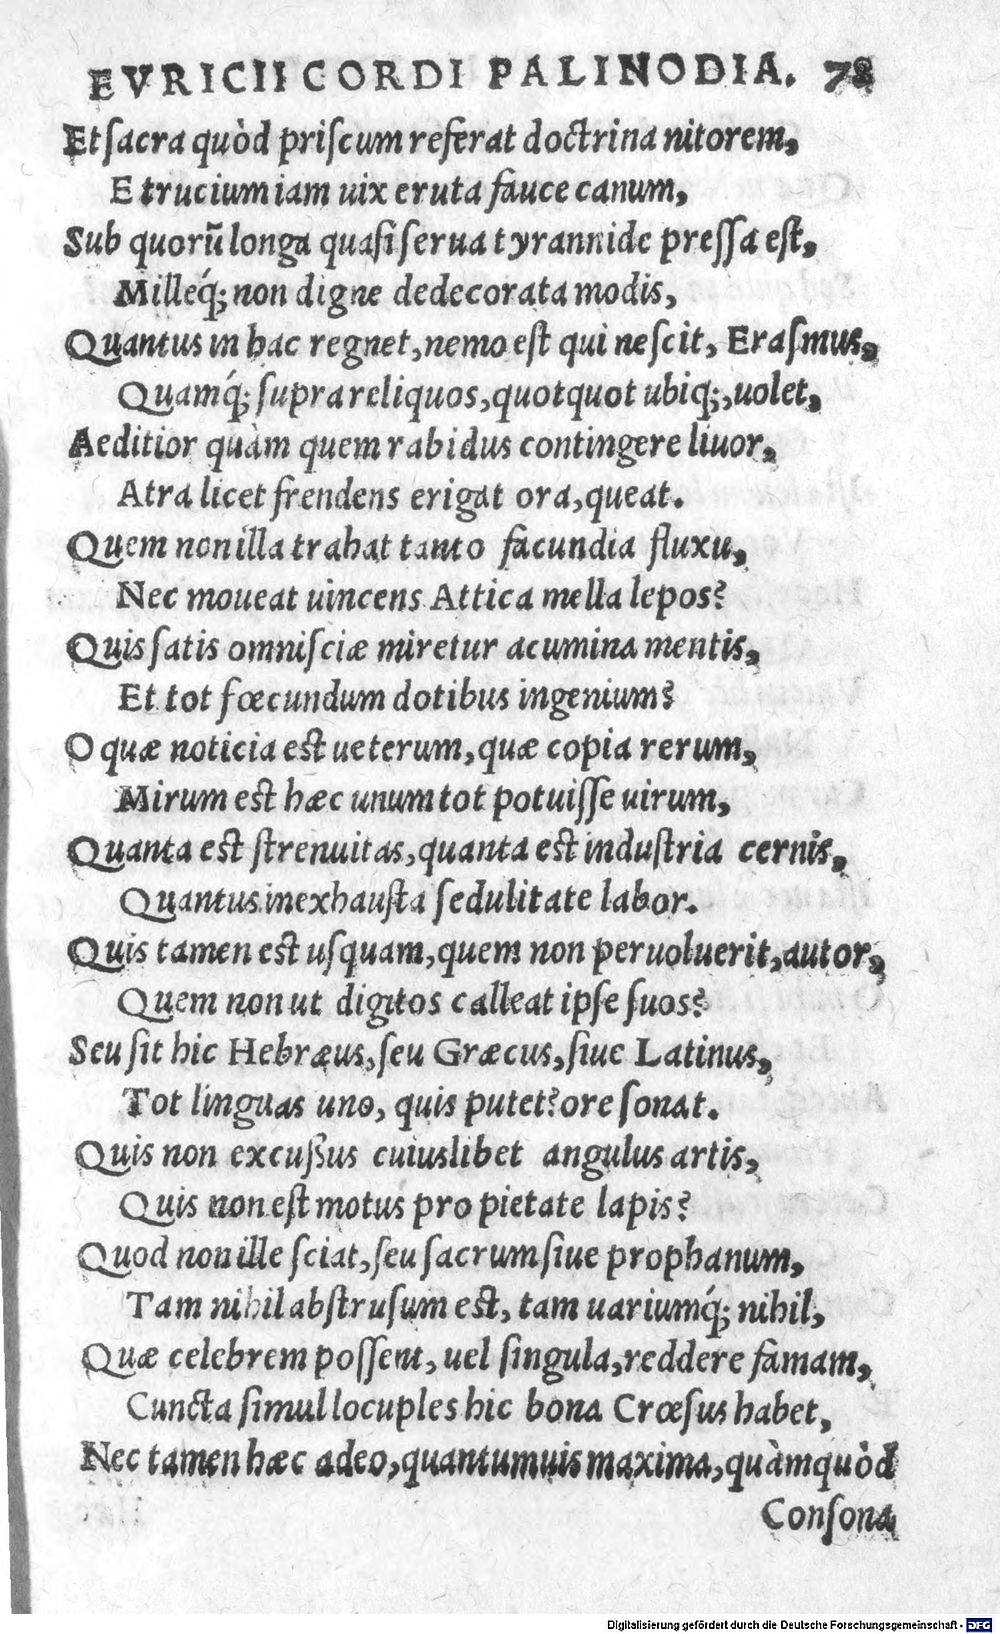 EVRICII CORDI PALINODIA. 78
Et ſacra quòd priſcum referat doctrina nitorem,
E trucium iam uix eruta fauce canum,
Sub quorũ longa quaſi ſerua tyrannide preſſa eſt,
Milleq́; non digne dedecorata modis,
Quantus in hac regnet, nemo eſt qui neſcit, Eraſmus,
Quamq́; ſupra reliquos, quotquot ubiq;, uolet,
Aeditior quàm quem rabidus contingere liuor,
Atra licet frendens erigat ora, queat.
Quem non illa trahat tanto facundia fluxu,
Nec moueat uincens Attica mella lepos?
Quis ſatis omniſciæ miretur acumina mentis,
Et tot fœcundum dotibus ingenium?
O quæ noticia eſt ueterum, quæ copia rerum,
Mirum eſt hæc unum tot potuiſſe uirum,
Quanta eſt ſtrenuitas, quanta eſt induſtria cernis,
Quantus inexhauſta ſedulitate labor.
Quis tamen eſt uſquam, quem non peruoluerit, autor,
Quem non ut digitos calleat ipſe ſuos?
Seu ſit hic Hebræus, ſeu Græcus, ſiue Latinus,
Tot linguas uno, quis putet? ore ſonat.
Quis non excuſſus cuiuslibet angulus artis,
Quis non eſt motus pro pietate lapis?
Quod non ille ſciat, ſeu ſacrum ſiue prophanum,
Tam nihil abſtruſum eſt, tam uariumq́; nihil,
Quæ celebrem poſſent, uel ſingula, reddere famam,
Cuncta ſimul locuples hic bona Crœſus habet,
Nec tamen hæc adeo, quantumuis maxima, quàm quòd
Conſona
Digitalisierung gefördert durch die Deutsche Forschungsgemeinschaft - DFG